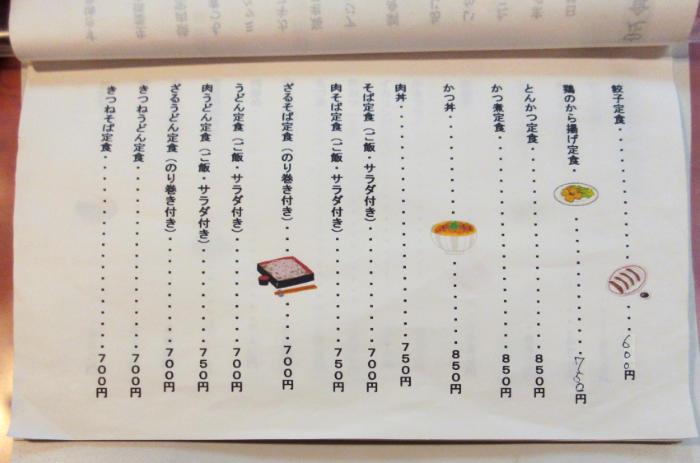 餃子定食・・・・・・・・・・・・・・・600円
鶏のから揚げ定食・・・・・・・・・・・・・・・750円
とんかつ定食・・・・・・・・・・・・・・・850円
かつ煮定食・・・・・・・・・・・・・・・850円
かつ丼・・・・・・・・・・・・・・・850円
肉丼・・・・・・・・・・・・・・・750円
そば定食（ご飯・サラダ付き）・・・・・・・・・・・700円
肉そば定食（ご飯・サラダ付き）・・・・・・・・・・・750円
ざるそば定食（のり巻き付き）・・・・・・・700円
うどん定食（ご飯・サラダ付き）・・・・・・・・・・・700円
肉うどん定食（ご飯・サラダ付き）・・・・・・・・・・750円
ざるうどん定食（のり巻き付き）・・・・・・・・・・・700円
きつねうどん定食・・・・・・・・・・・・・・・700円
きつねそば定食・・・・・・・・・・・・・・・700円